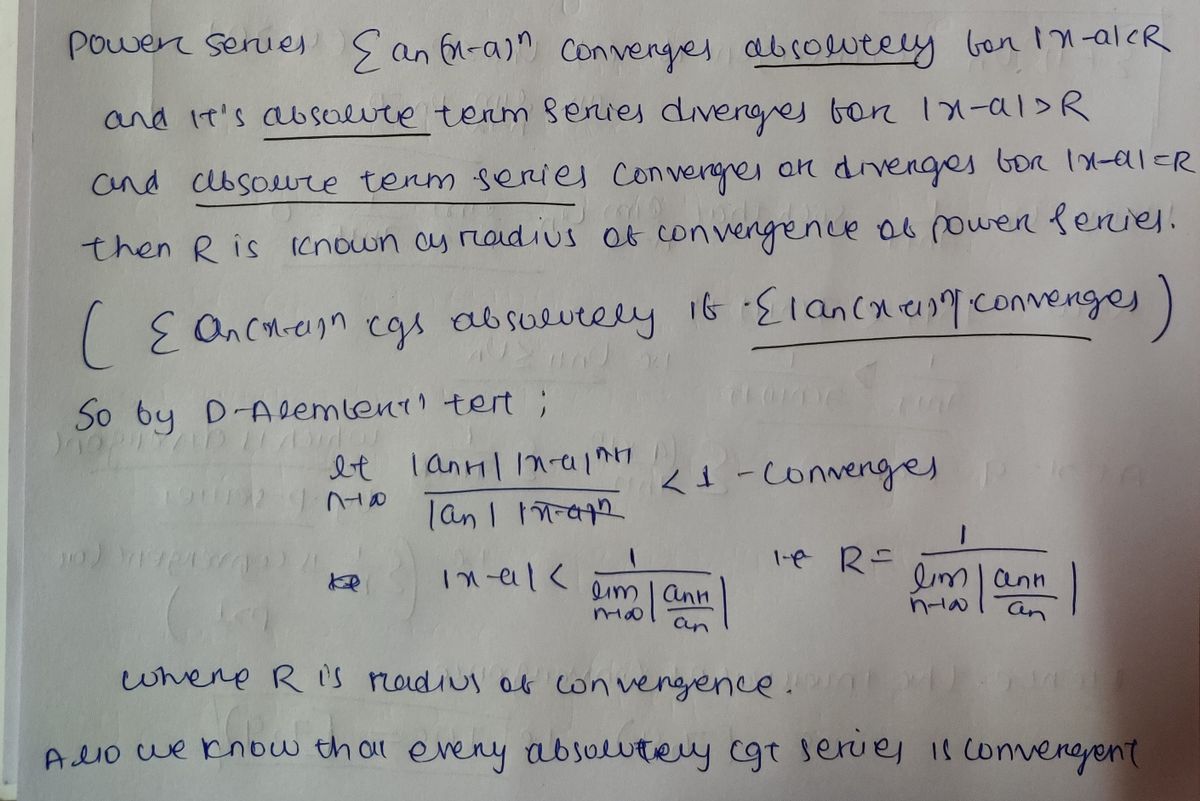 Power series Σ an (x-a)^n converges absolutely for |x-a|<R
and it's absolute term series diverges for |x-a|>R
and absolute term series converges or diverges for |x-a|=R
then R is known as radius of convergence of power series.
( Σ an(x-a)^n cgs absolutely if Σ|an(x-a)^n| converges )
So by D-Alembert's test ;
lt n→∞ |an+1| |x-a|^n+1 / |an| |x-a|^n < 1 - converges
|x-a| < 1 / lim n→∞ |an+1 / an| i-e R = 1 / lim n→∞ |an+1 / an|
where R is radius of convergence.
Also we know that every absolutely cgt series is convergent